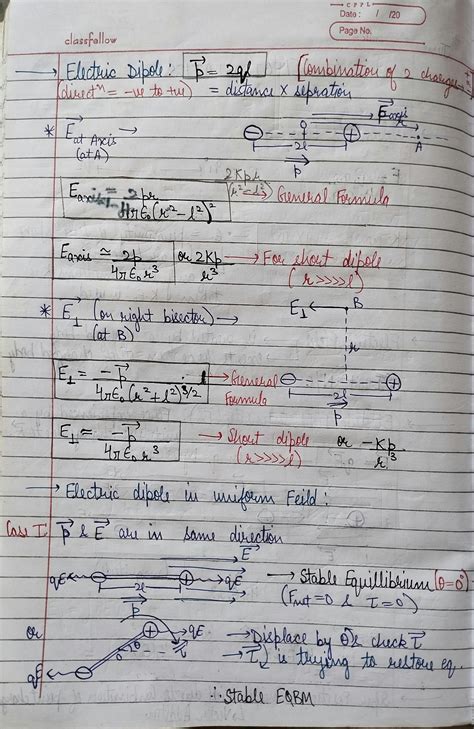 CPPL
Date : / /20
Page No.
classfellow
→ Electric Dipole: p⃗ = 2ql [Combination of 2 charges
(directⁿ = -ve to +ve) = distance × sepration
* E⃗ at Axis →
(at A)
E⃗axis
⊖ O ⊕ A
2l
p⃗
E axis = 2pr / 4πε₀(r²-l²)²
2Kpr / (r²-l²)² → General Formula
Eaxis ≈ 2p / 4πε₀r³ or 2Kp / r³ → For short dipole
(r >>>> l)
* E⃗⊥ (on right bisector) →
(at B)
E⊥ ← B
r
⊖ ⊕
2l
p⃗
E⊥ = -p⃗ / 4πε₀(r²+l²)^3/2 → General
Formula
E⊥ ≈ -p⃗ / 4πε₀r³ → Short dipole or -Kp / r³
(r >>>> l)
→ Electric dipole in uniform Feild :
Case I: p⃗ & E⃗ are in same direction
E⃗
qE ← ⊖ 2l ⊕ → qE → Stable Equillibrium (θ = 0°)
p⃗ (Fnet = 0 & τ = 0)
or ⊕ → qE → Displace by θ & check τ⃗
θ τ → τ⃗ is trying to restore eq.
qE ← ⊖
∴ Stable EQBM